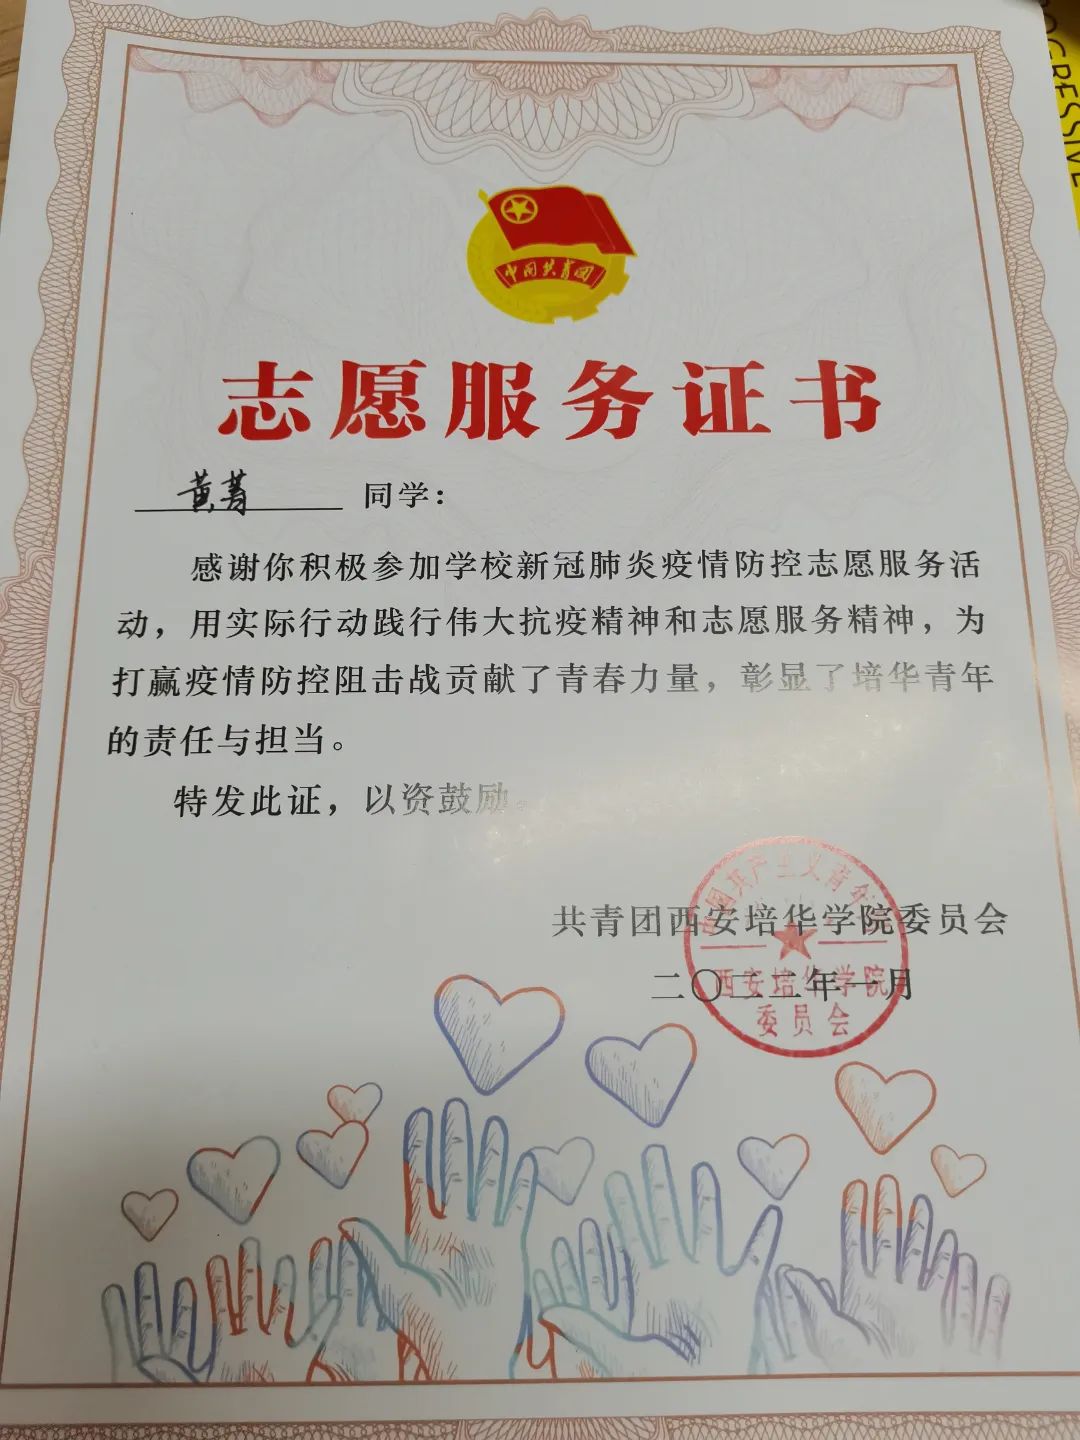 OGRESSIVE
中国共青团
志愿服务证书
黄菁 同学：
感谢你积极参加学校新冠肺炎疫情防控志愿服务活
动，用实际行动践行伟大抗疫精神和志愿服务精神，为
打赢疫情防控阻击战贡献了青春力量，彰显了培华青年
的责任与担当。
特发此证，以资鼓励。
共青团西安培华学院委员会
二〇二二年一月
中国共产主义青年团
西安培华学院
委员会